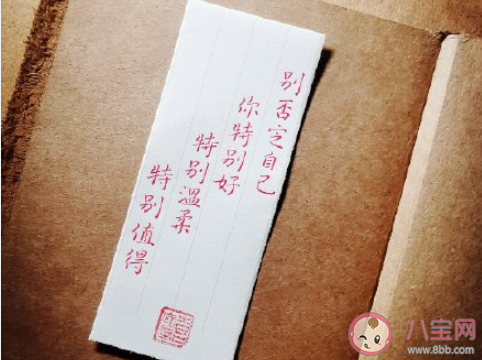 别否定自己
你特别好
特别温柔
特别值得
八宝网
www.8bb.com